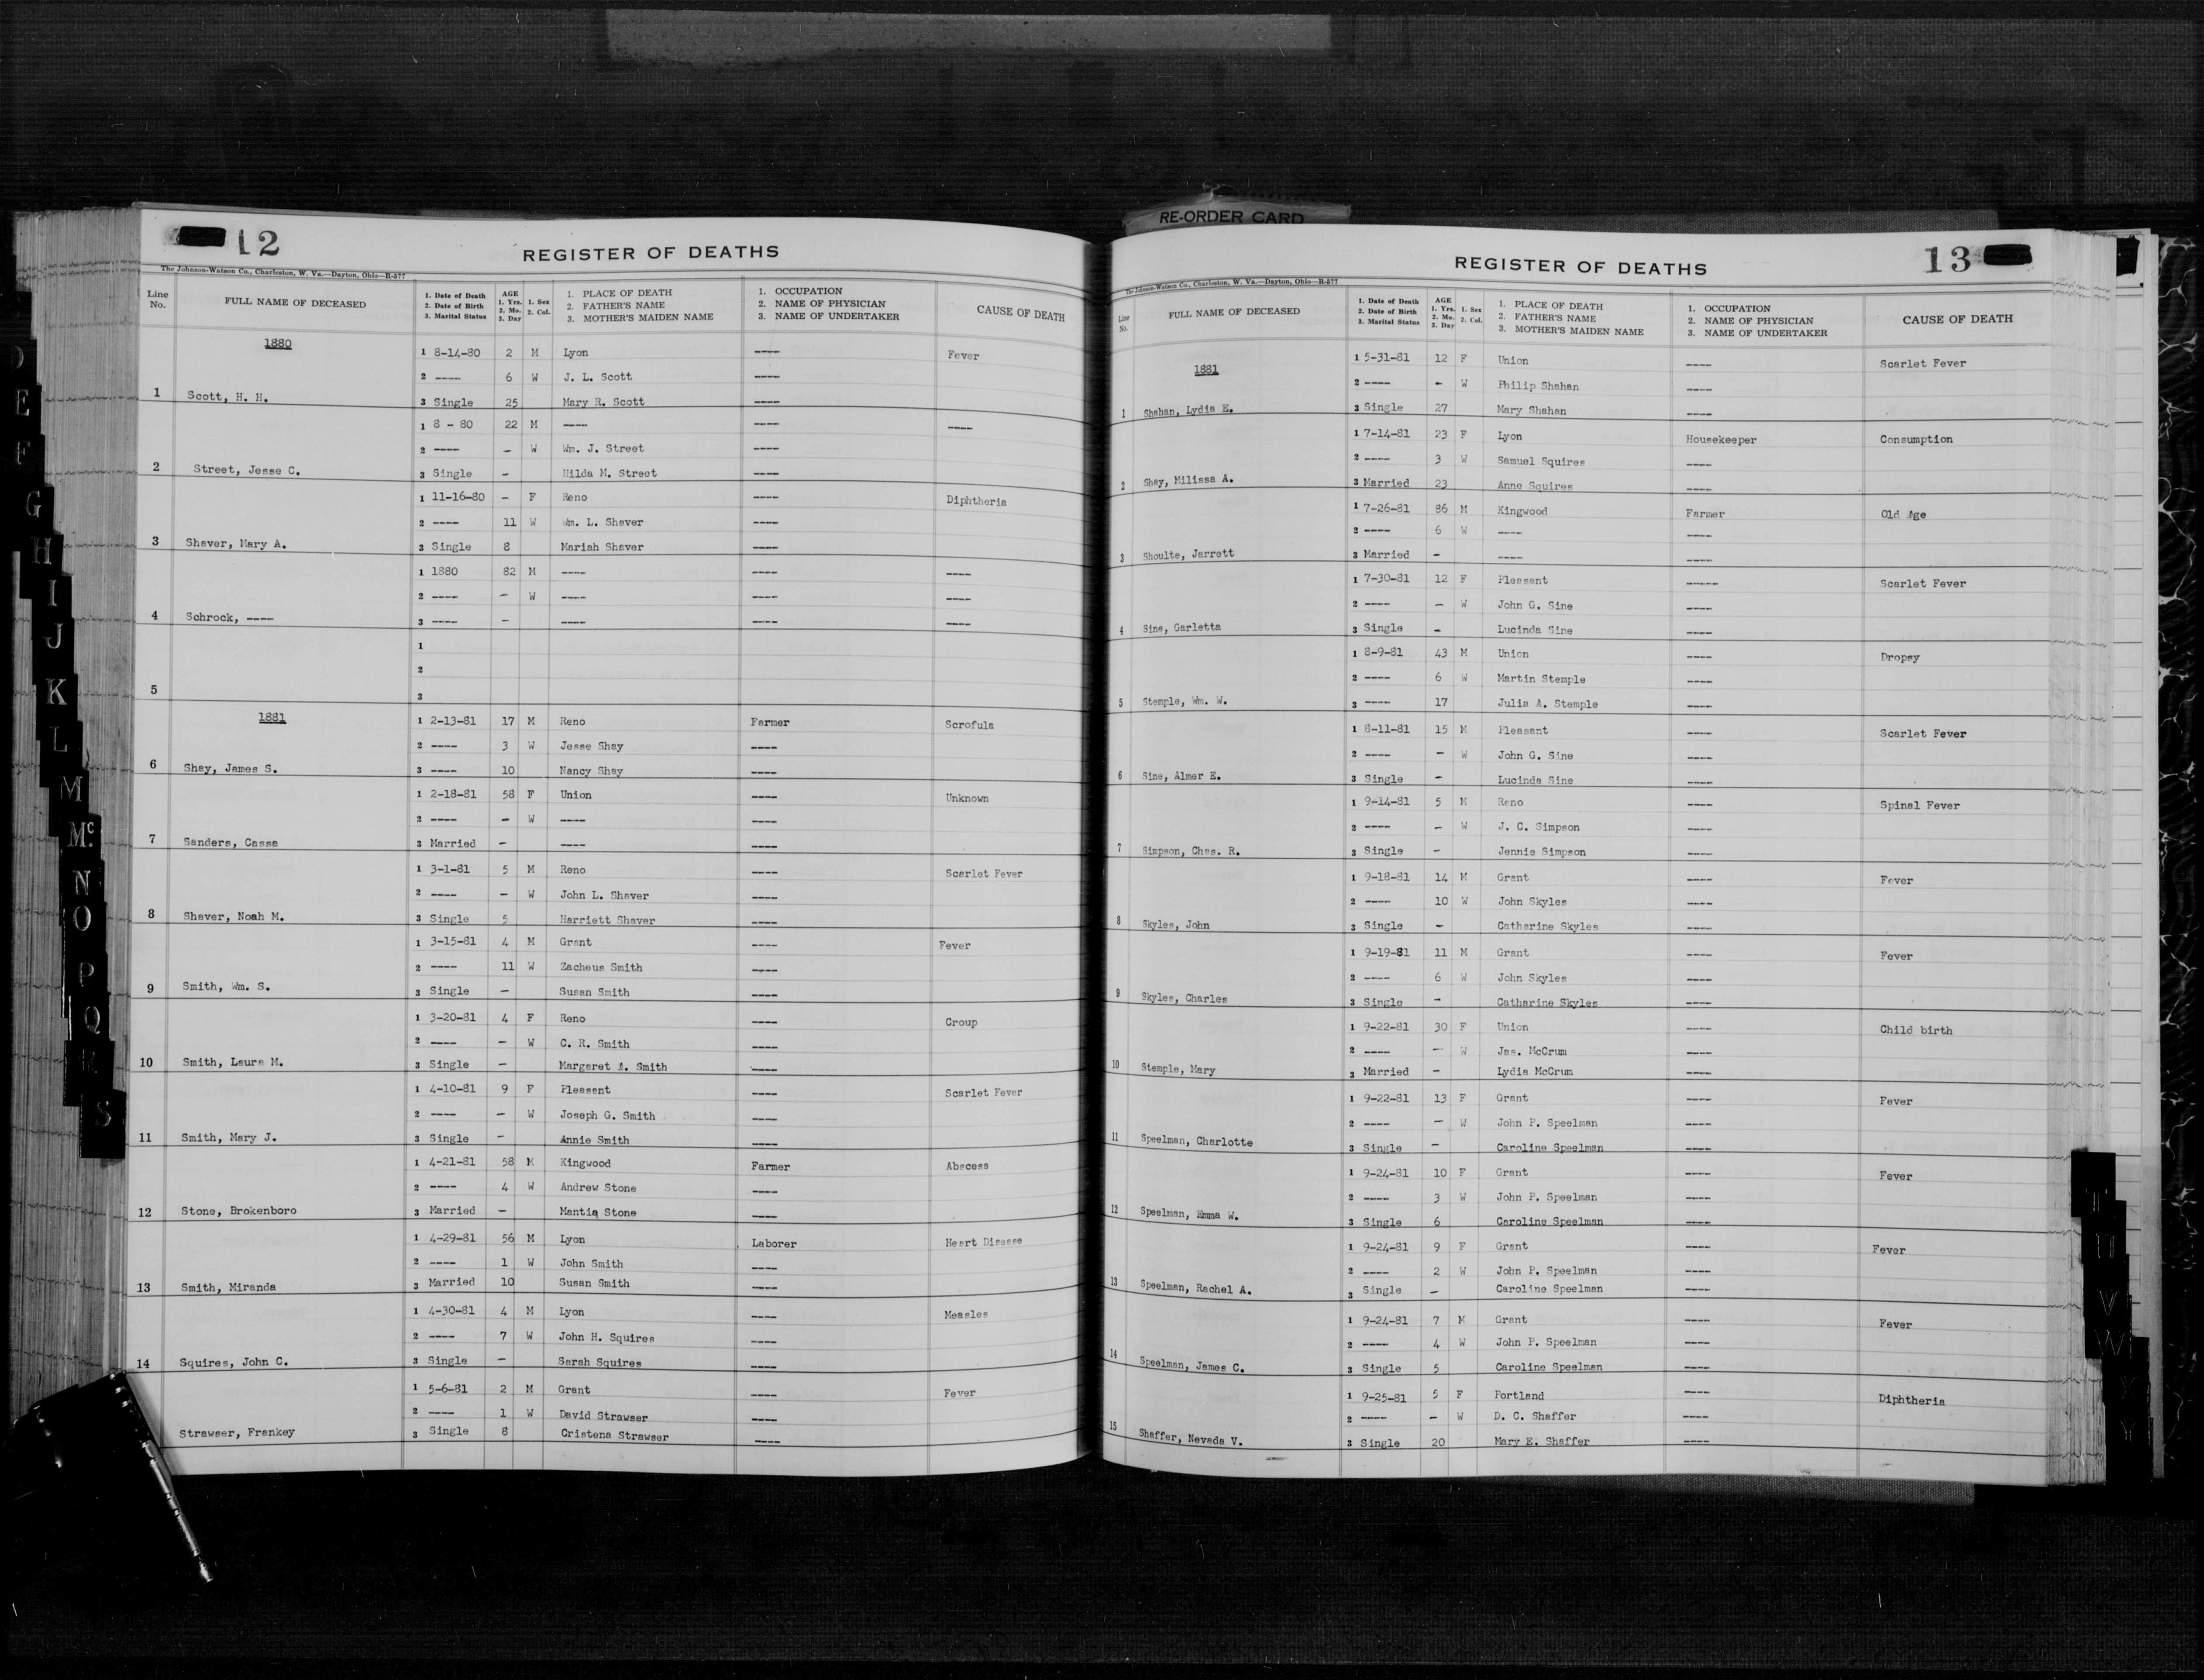 RE-ORDER CARD
12
REGISTER OF DEATHS
The Johnson-Watson Co., Charleston, W. Va.—Dayton, Ohio—R-577
Line No. FULL NAME OF DECEASED 1. Date of Death 2. Date of Birth 3. Marital Status AGE 1. Yrs. 2. Mo. 3. Day 1. Sex 2. Col. 1. PLACE OF DEATH 2. FATHER'S NAME 3. MOTHER'S MAIDEN NAME 1. OCCUPATION 2. NAME OF PHYSICIAN 3. NAME OF UNDERTAKER CAUSE OF DEATH
1880
1 8-14-80 2 M Lyon ---- Fever
2 ---- 6 W J. L. Scott ----
1 Scott, H. H. 3 Single 25 Mary R. Scott ----
1 8 - 80 22 M ---- ---- ----
2 ---- - W Wm. J. Street ----
2 Street, Jesse C. 3 Single - Hilda M. Street ----
1 11-16-80 - F Reno ---- Diphtheria
2 ---- 11 W Wm. L. Shaver ----
3 Shaver, Mary A. 3 Single 8 Mariah Shaver ----
1 1880 82 M ---- ---- ----
2 ---- - W ---- ---- ----
4 Schrock, ---- 3 ---- - ---- ---- ----
1
2
5 3
1881 1 2-13-81 17 M Reno Farmer Scrofula
2 ---- 3 W Jesse Shay ----
6 Shay, James S. 3 ---- 10 Nancy Shay ----
1 2-18-81 58 F Union ---- Unknown
2 ---- - W ---- ----
7 Sanders, Cassa 3 Married - ---- ----
1 3-1-81 5 M Reno ---- Scarlet Fever
2 ---- - W John L. Shaver ----
8 Shaver, Noah M. 3 Single 5 Harriett Shaver ----
1 3-15-81 4 M Grant ---- Fever
2 ---- 11 W Zacheus Smith ----
9 Smith, Wm. S. 3 Single - Susan Smith ----
1 3-20-81 4 F Reno ---- Croup
2 ---- - W C. R. Smith ----
10 Smith, Laura M. 3 Single - Margaret A. Smith ----
1 4-10-81 9 F Pleasant ---- Scarlet Fever
2 ---- - W Joseph G. Smith ----
11 Smith, Mary J. 3 Single - Annie Smith ----
1 4-21-81 58 M Kingwood Farmer Abscess
2 ---- 4 W Andrew Stone ----
12 Stone, Brokenboro 3 Married - Mantia Stone ----
1 4-29-81 56 M Lyon Laborer Heart Disease
2 ---- 1 W John Smith ----
13 Smith, Miranda 3 Married 10 Susan Smith ----
1 4-30-81 4 M Lyon ---- Measles
2 ---- 7 W John H. Squires ----
14 Squires, John C. 3 Single - Sarah Squires ----
1 5-6-81 2 M Grant ---- Fever
2 ---- 1 W David Strawser ----
Strawser, Frankey 3 Single 8 Cristena Strawser ----
13
REGISTER OF DEATHS
The Johnson-Watson Co., Charleston, W. Va.—Dayton, Ohio—R-577
Line No. FULL NAME OF DECEASED 1. Date of Death 2. Date of Birth 3. Marital Status AGE 1. Yrs. 2. Mo. 3. Day 1. Sex 2. Col. 1. PLACE OF DEATH 2. FATHER'S NAME 3. MOTHER'S MAIDEN NAME 1. OCCUPATION 2. NAME OF PHYSICIAN 3. NAME OF UNDERTAKER CAUSE OF DEATH
1881
1 5-31-81 12 F Union ---- Scarlet Fever
2 ---- - W Philip Shahan ----
1 Shahan, Lydia E. 3 Single 27 Mary Shahan ----
1 7-14-81 23 F Lyon Housekeeper Consumption
2 ---- 3 W Samuel Squires ----
2 Shay, Milissa A. 3 Married 23 Anne Squires ----
1 7-26-81 86 M Kingwood Farmer Old Age
2 ---- 6 W ---- ----
3 Shoulte, Jarrett 3 Married - ---- ----
1 7-30-81 12 F Pleasant ----- Scarlet Fever
2 ---- - W John G. Sine ----
4 Sine, Garletta 3 Single - Lucinda Sine ----
1 8-9-81 43 M Union ---- Dropsy
2 ---- 6 W Martin Stemple ----
5 Stemple, Wm. W. 3 ---- 17 Julia A. Stemple ----
1 8-11-81 15 M Pleasant ---- Scarlet Fever
2 ---- - W John G. Sine ----
6 Sine, Almer E. 3 Single - Lucinda Sine ----
1 9-14-81 5 M Reno ---- Spinal Fever
2 ---- - W J. C. Simpson ----
7 Simpson, Chas. R. 3 Single - Jennie Simpson ----
1 9-18-81 14 M Grant ---- Fever
2 ---- 10 W John Skyles ----
8 Skyles, John 3 Single - Catharine Skyles ----
1 9-19-81 11 M Grant ---- Fever
2 ---- 6 W John Skyles ----
9 Skyles, Charles 3 Single - Catharine Skyles ----
1 9-22-81 30 F Union ---- Child birth
2 ---- - W Jas. McCrum ----
10 Stemple, Mary 3 Married - Lydia McCrum ----
1 9-22-81 13 F Grant ---- Fever
2 ---- - W John P. Speelman ----
11 Speelman, Charlotte 3 Single - Caroline Speelman ----
1 9-24-81 10 F Grant ---- Fever
2 ---- 3 W John P. Speelman ----
12 Speelman, Emma W. 3 Single 6 Caroline Speelman ----
1 9-24-81 9 F Grant ---- Fever
2 ---- 2 W John P. Speelman ----
13 Speelman, Rachel A. 3 Single - Caroline Speelman ----
1 9-24-81 7 M Grant ---- Fever
2 ---- 4 W John P. Speelman ----
14 Speelman, James C. 3 Single 5 Caroline Speelman ----
1 9-25-81 5 F Portland ---- Diphtheria
2 ---- - W D. C. Shaffer ----
15 Shaffer, Nevada V. 3 Single 20 Mary E. Shaffer ----
E
F
G
H
I
J
K
L
M
Mc
N
O
P
Q
R
S
V
W
Y